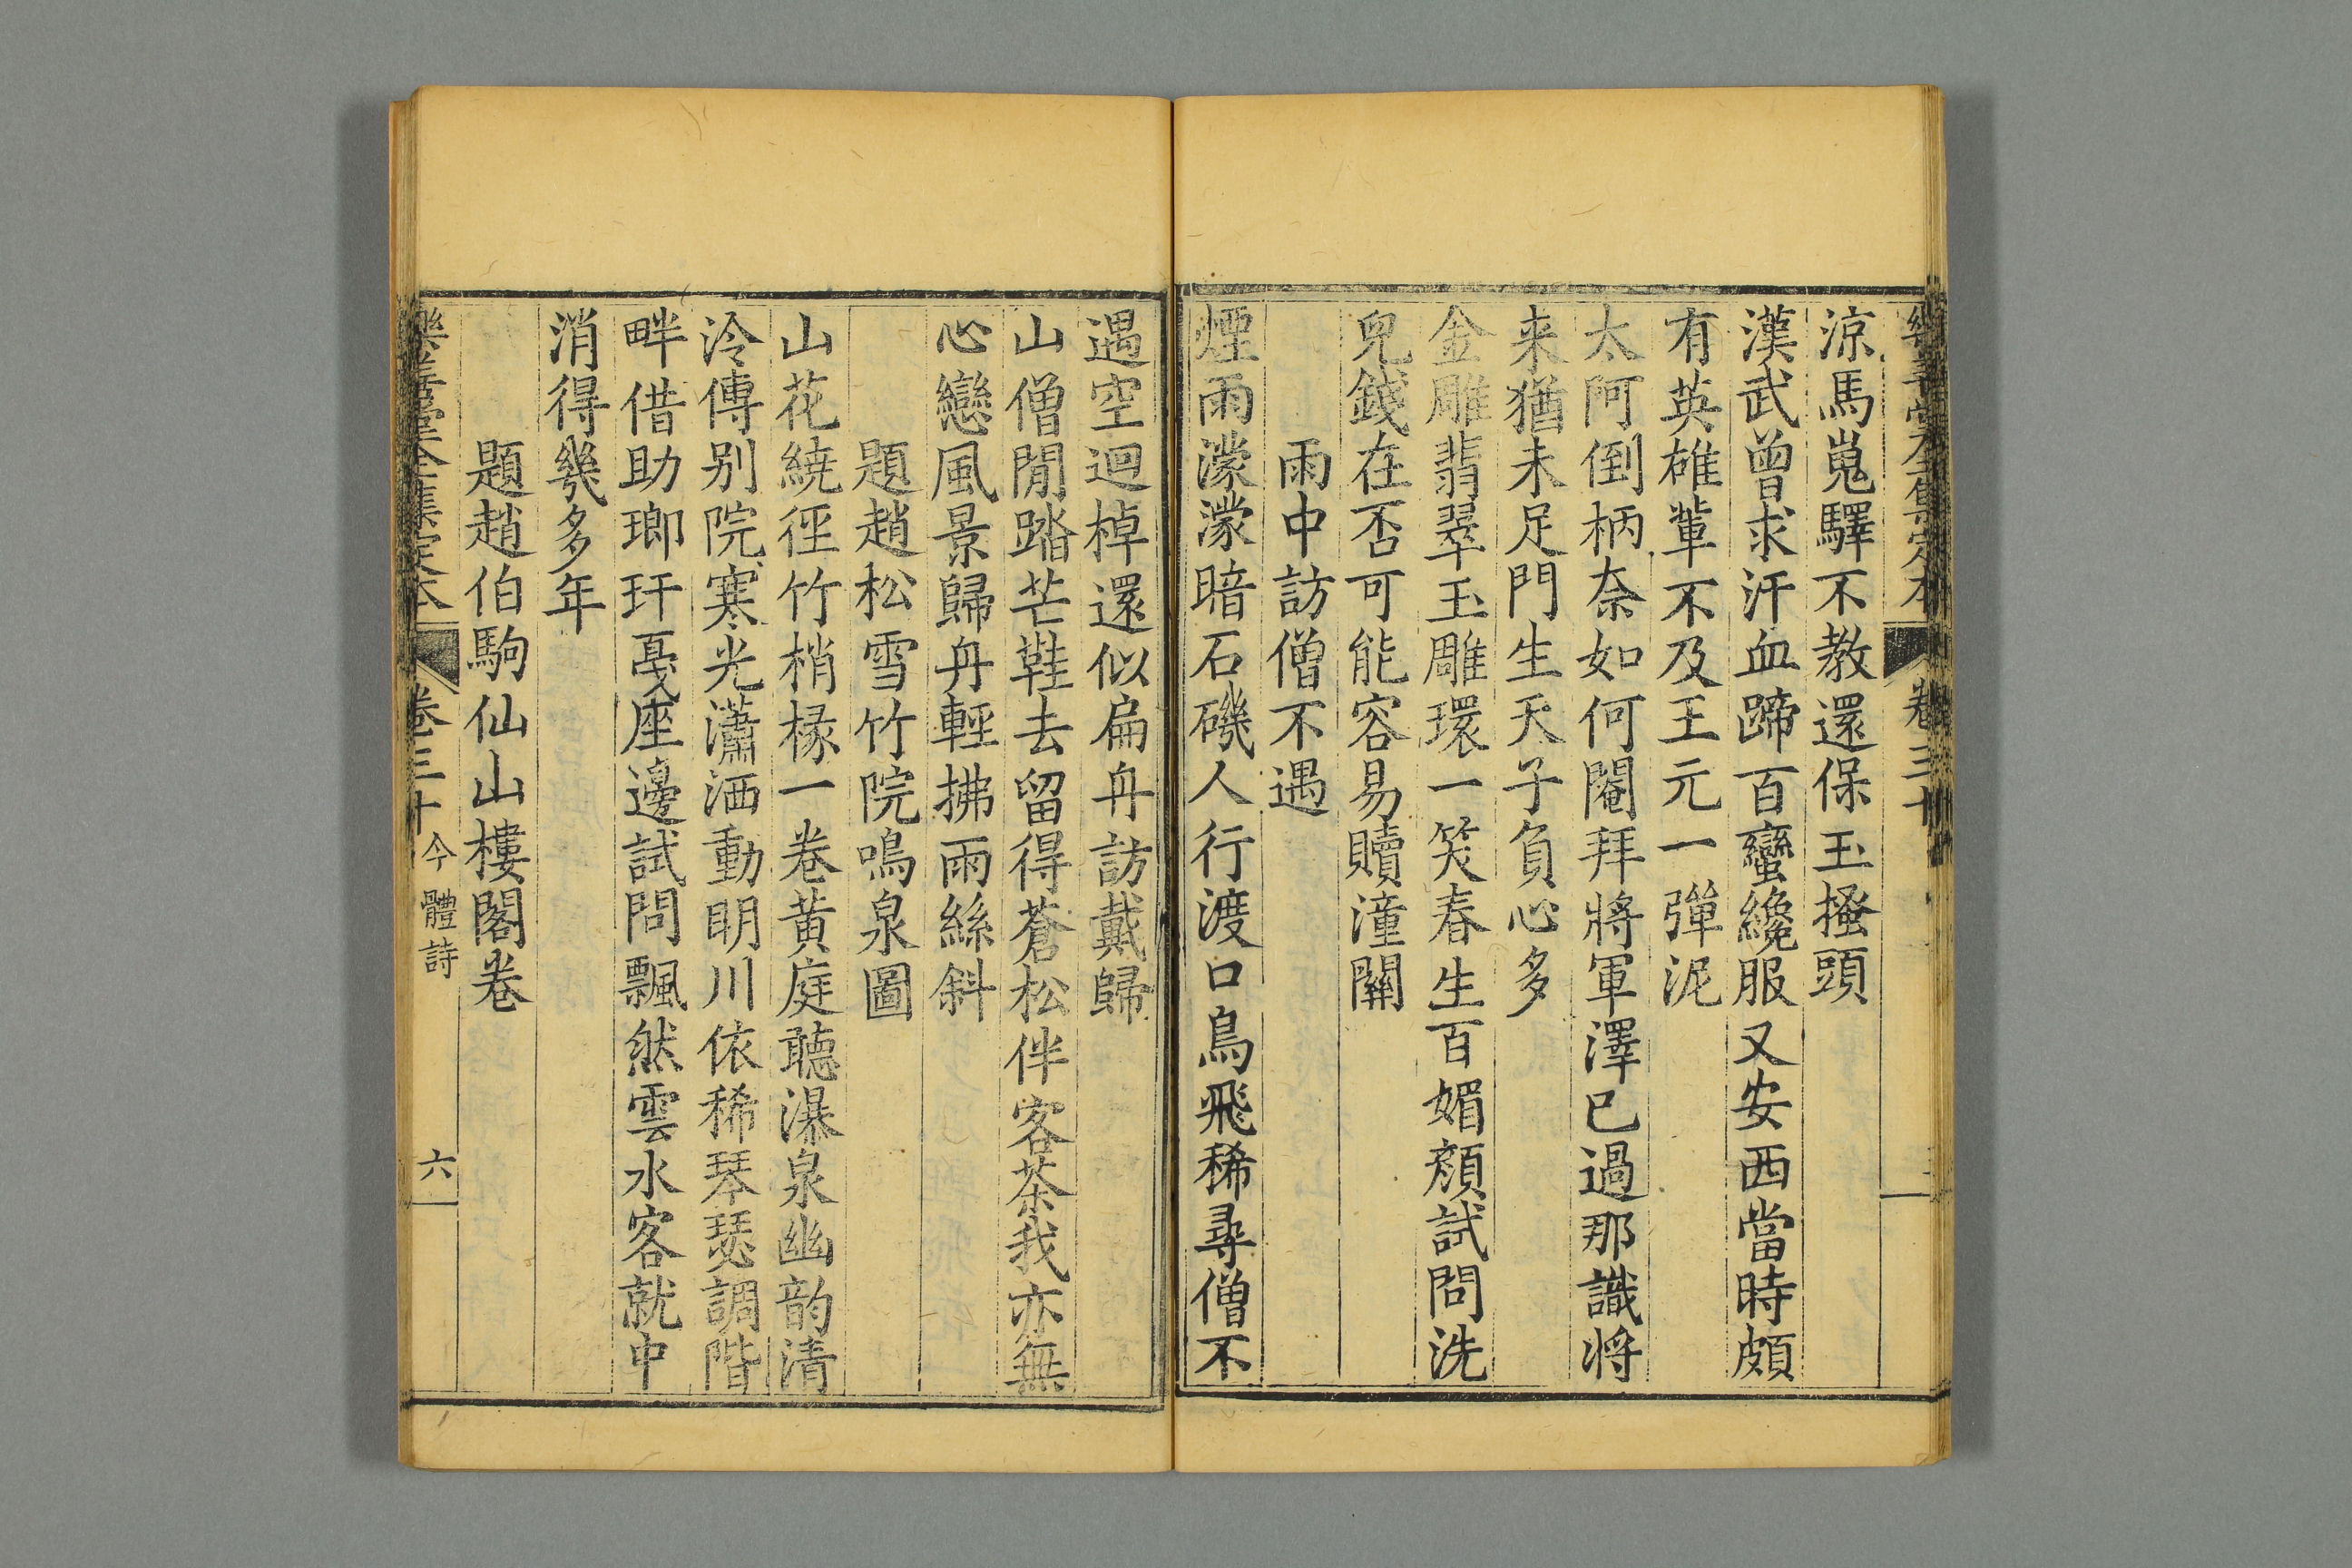 樂善堂全集定本 卷三十
涼馬嵬驛不教還保玉搔頭
漢武曾求汗血蹄百蠻纔服又安西當時頗
有英雄輩不及王元一彈泥
太阿倒柄奈如何閹拜將軍澤已過那識將
来猶未足門生天子負心多
金雕翡翠玉雕環一笑春生百媚顏試問洗
兒錢在否可能容易贖潼關
雨中訪僧不遇
煙雨濛濛暗石磯人行渡口鳥飛稀尋僧不
遇空迴棹還似扁舟訪戴歸
山僧閒踏芒鞋去留得蒼松伴客茶我亦無
心戀風景歸舟輕拂雨絲斜
題趙松雪竹院鳴泉圖
山花繞徑竹梢椽一卷黄庭聽瀑泉幽韵清
泠傳别院寒光瀟洒動明川依稀琴瑟調階
畔借助瑯玕戛座邊試問飄然雲水客就中
消得幾多年
題趙伯駒仙山樓閣卷
樂善堂全集定本 卷三十 今體詩 六